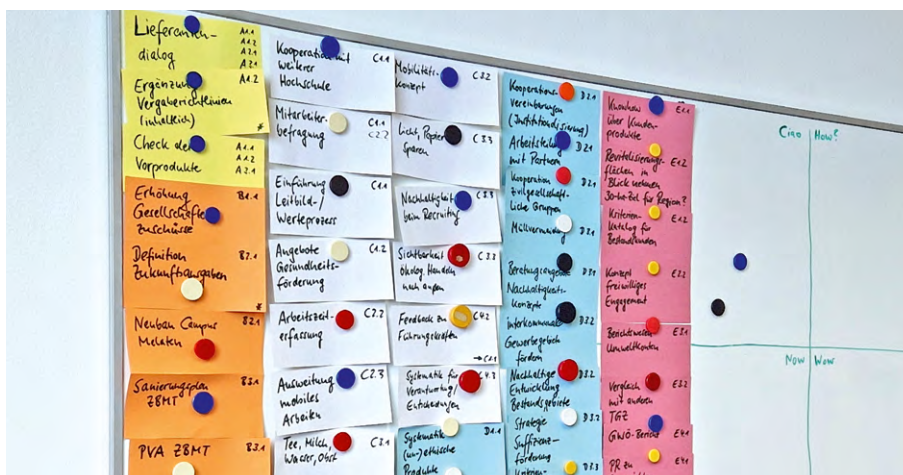 Lieferanten-
dialog
A1.1
A1.2
A2.1
A2.1
Ergänzung
Vergaberichtlinien
(inhaltlich)
A1.2
*
Check der
Vorprodukte
A1.1
A1.2
A2.1
Erhöhung
Gesellschafter
zuschüsse
B1.1
Definition
Zukunftsausgaben
B2.1
*
Neubau Campus
Melaten
B2.1
Sanierungsplan
ZBMT
B3.1
PVA ZBMT
B3.1
Kooperation mit
weiterer
Hochschule
C1.1
Mitarbeiter-
befragung
C1.1
C2.2
Einführung
Leitbild-/
Werteprozess
C1.1
Angebote
Gesundheits-
förderung
C1.2
Arbeitszeit-
erfassung
C2.2
Ausweitung
mobiles
Arbeiten
C2.3
Tee, Milch,
Wasser, Obst
C3.1
Mobilitäts-
konzept
C3.2
Licht, Papier
sparen
C3.3
Nachhaltigkeit
beim Recruiting
C3.3
Sichtbarkeit
ökolog. Handeln
nach außen
C3.3
Feedback zu
Führungskräften
C4.2
→ C1.1
Systematik für
Verantwortung/
Entscheidungen
C4.3
Systematik
(un-)ethische
Produkte
D1.1
Kooperations-
vereinbarungen
(Institutionalisierung)
D2.1
Arbeitsteilung
mit Partnern
D2.1
Kooperation
zivilgesellschaft-
liche Gruppen
D2.1
Müllvermeidung
D3.1
Beratungsangebot
Nachhaltigkeits-
konzepte
D3.1
interkommunale
Gewerbegebiete
fördern
D3.2
Nachhaltige
Entwicklung
Bestandsgebiete
D3.2
Strategie
Suffizienz-
förderung
D3.2
Kriterien-
D3.3
Knowhow
über Kunden-
produkte
E1.1
Revitalisierungs-
flächen in
Blick nehmen
30-ha-Ziel für Region?
E1.2
Kriterien-
katalog für
Bestandskunden
E1.2
Konzept
freiwilliges
Engagement
E2.2
Berichtswesen
Umweltkonten
E3.1
Vergleich
mit anderen
TGZ
E3.2
GWÖ-Bericht
E4.1
PR zu
E4.1
Ciao
How?
Now
Wow